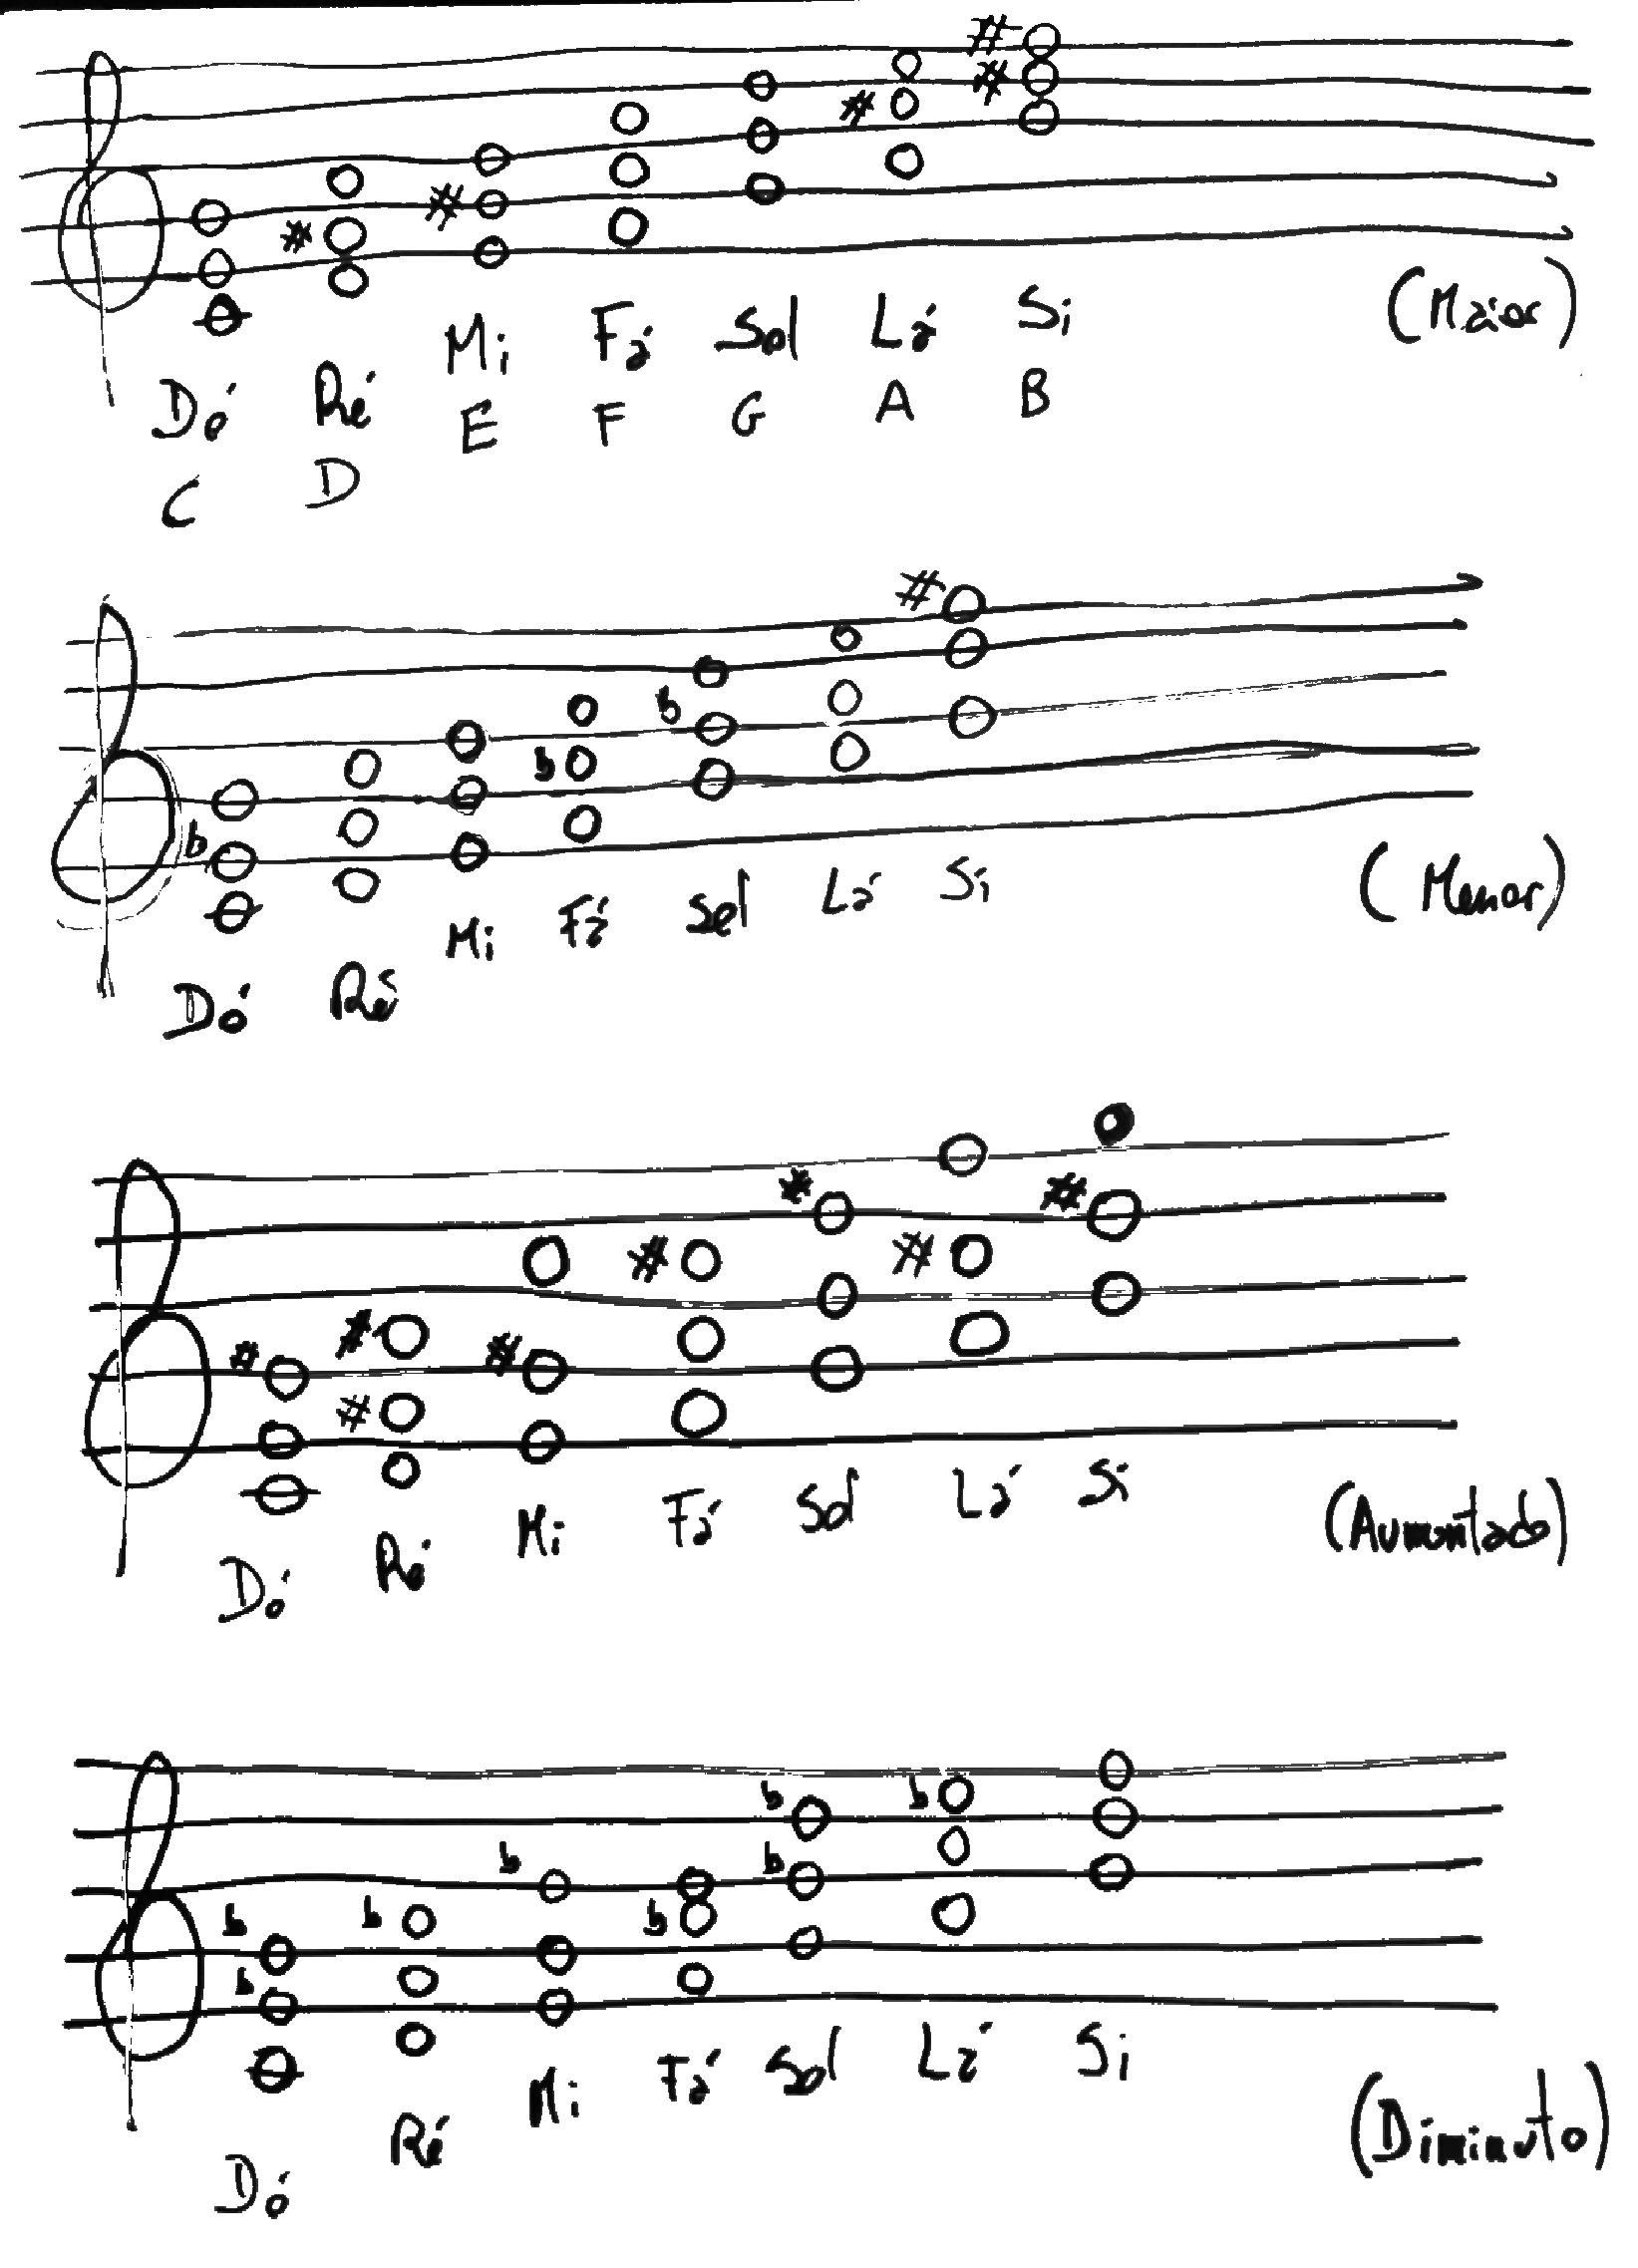 Dó Ré Mi Fá Sol Lá Si (Maior)
C D E F G A B
Dó Ré Mi Fá Sol Lá Si (Menor)
Dó Ré Mi Fá Sol Lá Si (Aumentado)
Dó Ré Mi Fá Sol Lá Si (Diminuto)